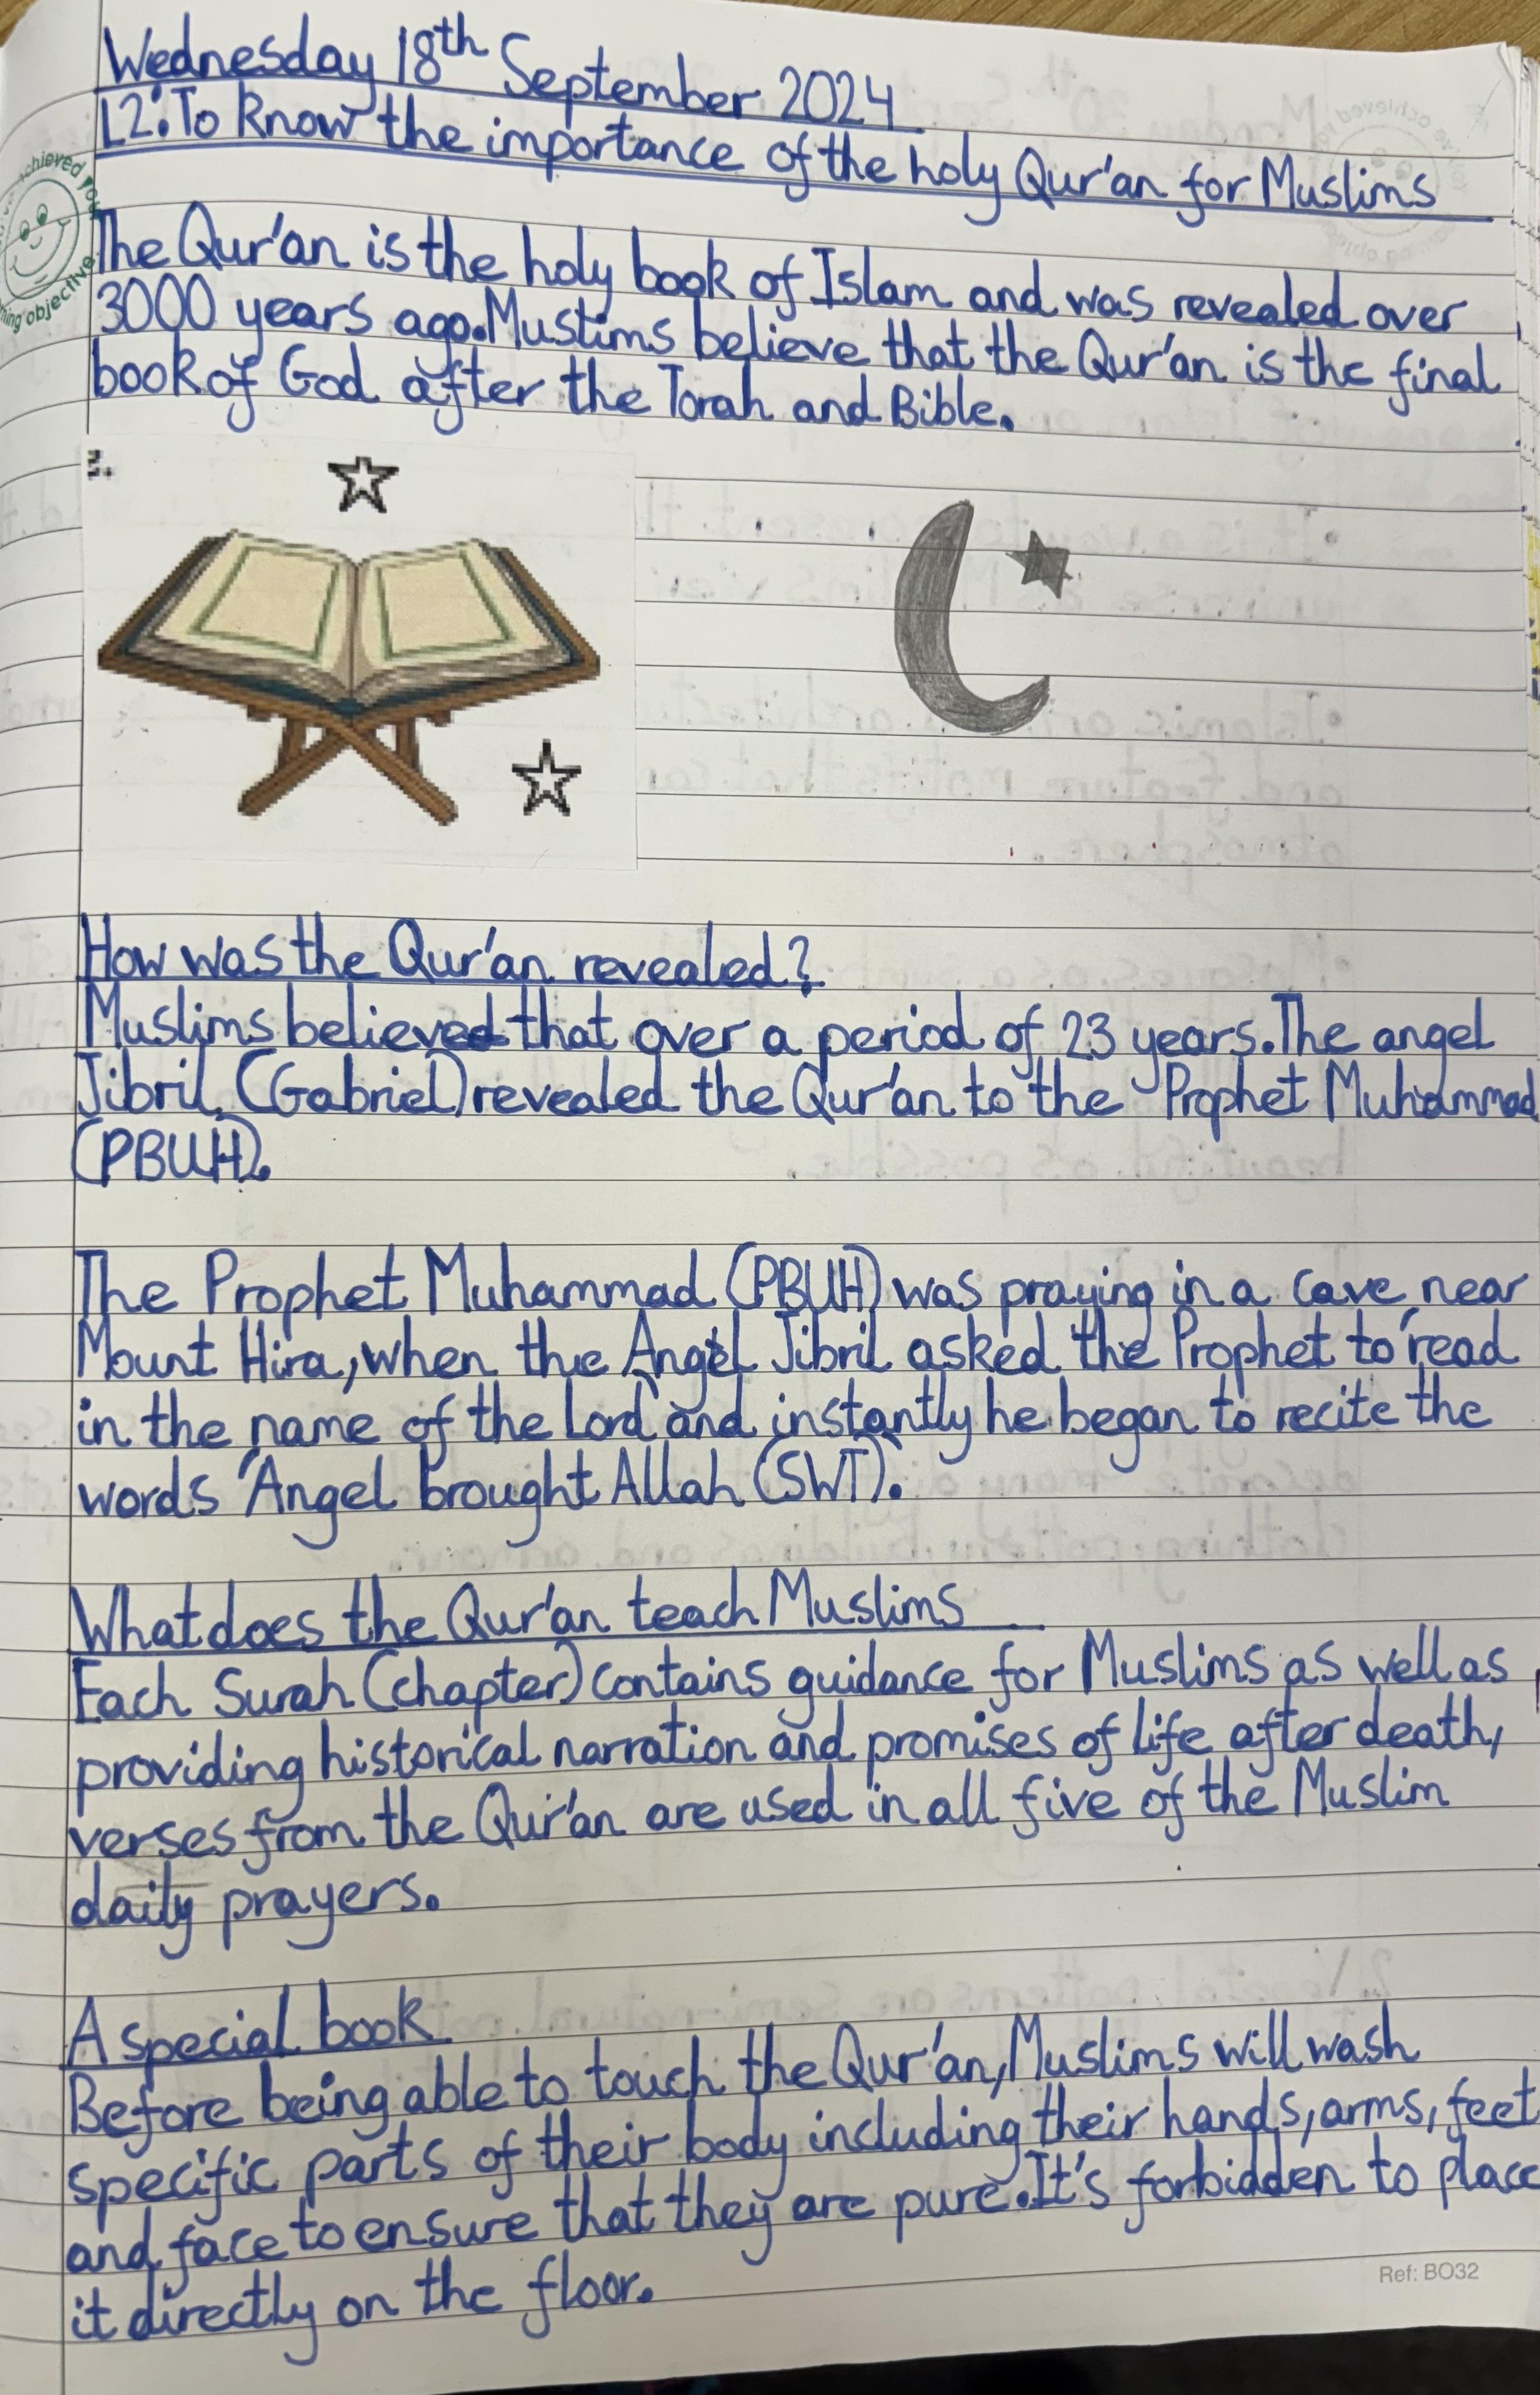 Wednesday 18th September 2024
L2: To know the importance of the holy Qur'an for Muslims
achieved you
ning objective
The Qur'an is the holy book of Islam and was revealed over
3000 years ago. Mustims believe that the Qur'an is the final
book of God after the Torah and Bible.
How was the Qur'an revealed?
Muslims believed that over a period of 23 years. The angel
Jibril, (Gabriel) revealed the Qur'an to the Prophet Muhammad
(PBUH).
The Prophet Muhammad (PBUH) was praying in a cave near
Mount Hira, when the Angel Jibril asked the Prophet to 'read
in the name of the Lord' and instantly he began to recite the
words 'Angel brought Allah (SWT).
What does the Qur'an teach Muslims
Each Surah (chapter) contains guidance for Muslims as well as
providing historical narration and promises of life after death,
verses from the Qur'an are used in all five of the Muslim
daily prayers.
A special book
Before being able to touch the Qur'an, Muslims will wash
specific parts of their body including their hands, arms, feet
and face to ensure that they are pure. It's forbidden to place
it directly on the floor.
Ref: BO32